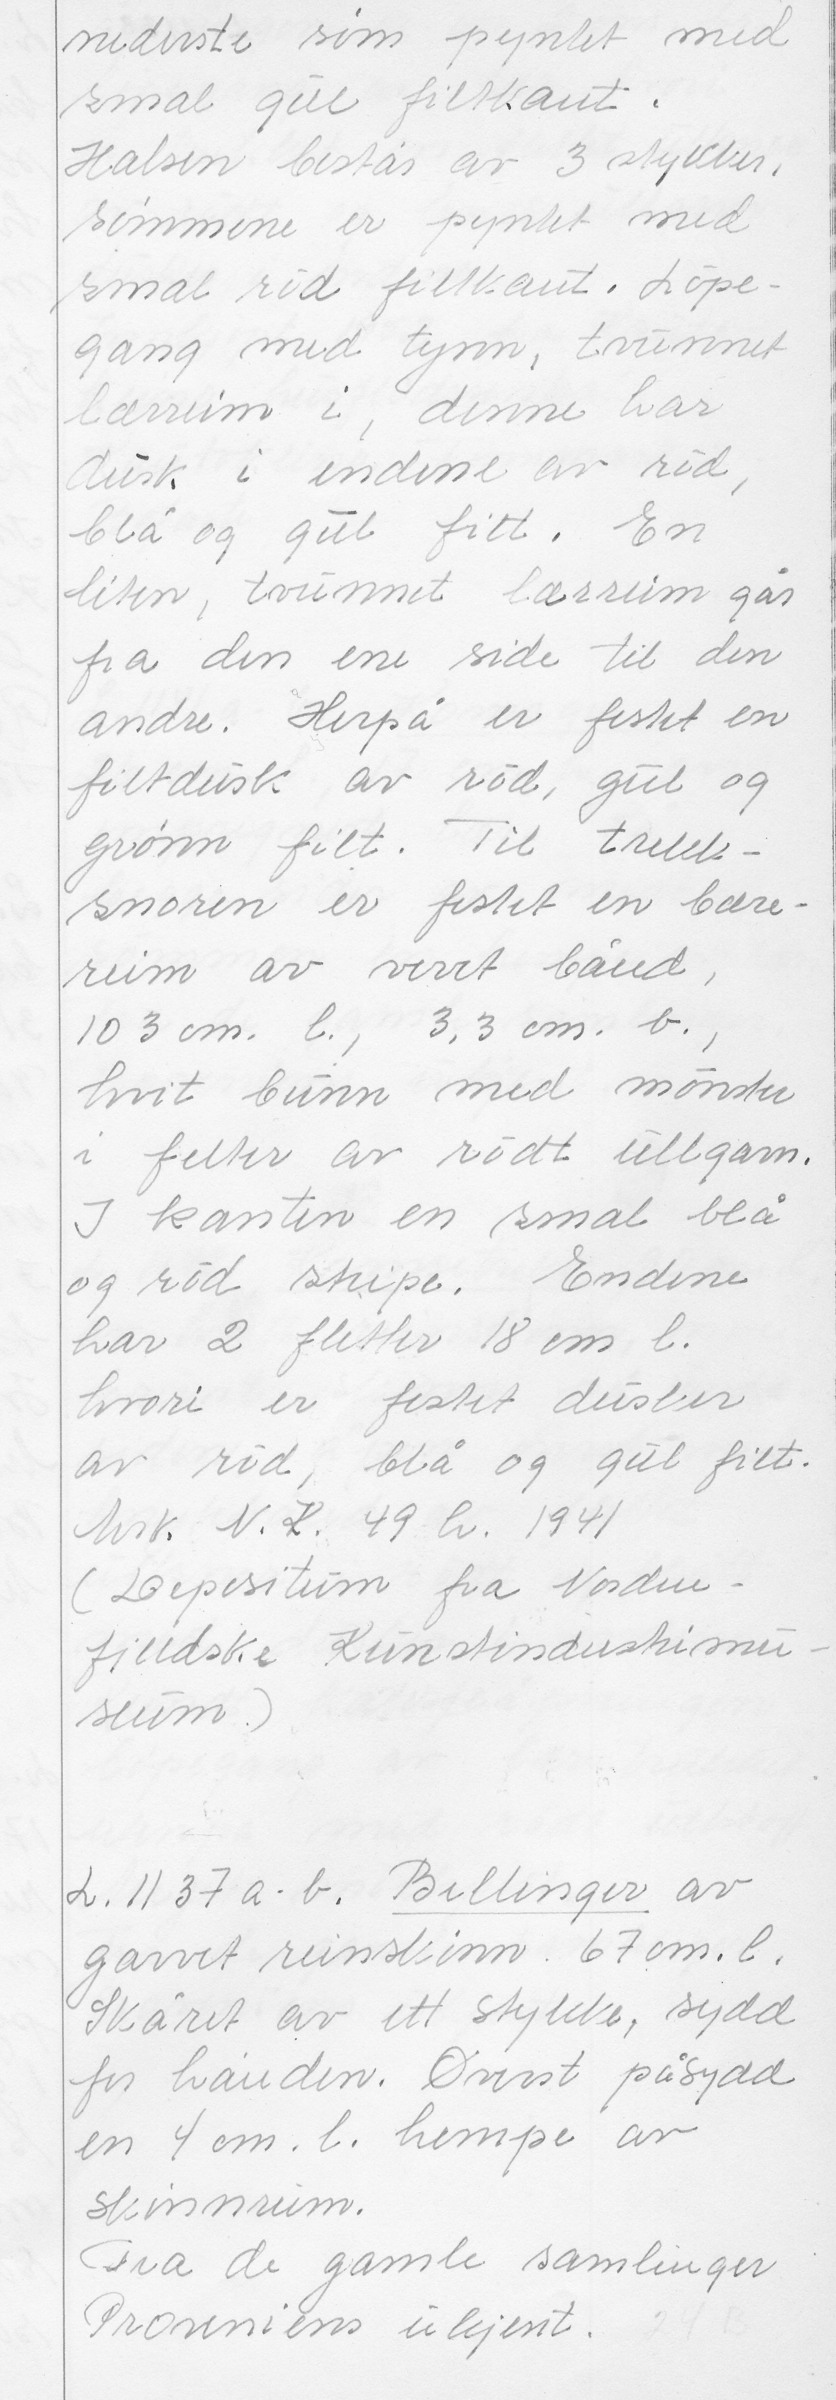 nederste söm pyntet med
smal gul filtkant.
Halsen består av 3 stykker,
sömmene er pyntet med
smal röd filtkant. Löpe-
gang med tynn, tvunnet
lærreim i, denne har
dusk i endene av röd,
blå og gul filt. En
liten, tvunnet lærreim går
fra den ene side til den
andre. Herpå er festet en
filtdusk av röd, gul og
grönn filt. Til trekk-
snoren er festet en bære-
reim av vevet bånd,
103 cm. l., 3,3 cm. b.,
hvit bunn med mönster
i felter av rödt ullgarn.
I kanten en smal blå
og röd stripe. Endene
har 2 fletter 18 cm l.
hvori er festet dusker
av röd, blå og gul filt.
N. K. 49 h. 1941
(Depositum fra Norden-
fjeldske Kunstindustrimu-
seum.)
L. 1137 a-b. Bellinger av
garvet reinskinn. 67 cm. l.
Skåret av ett stykke, sydd
for hånden. Øverst påsydd
en 4 cm. l. hempe av
skinnreim.
Fra de gamle samlinger
Proveniens ukjent.